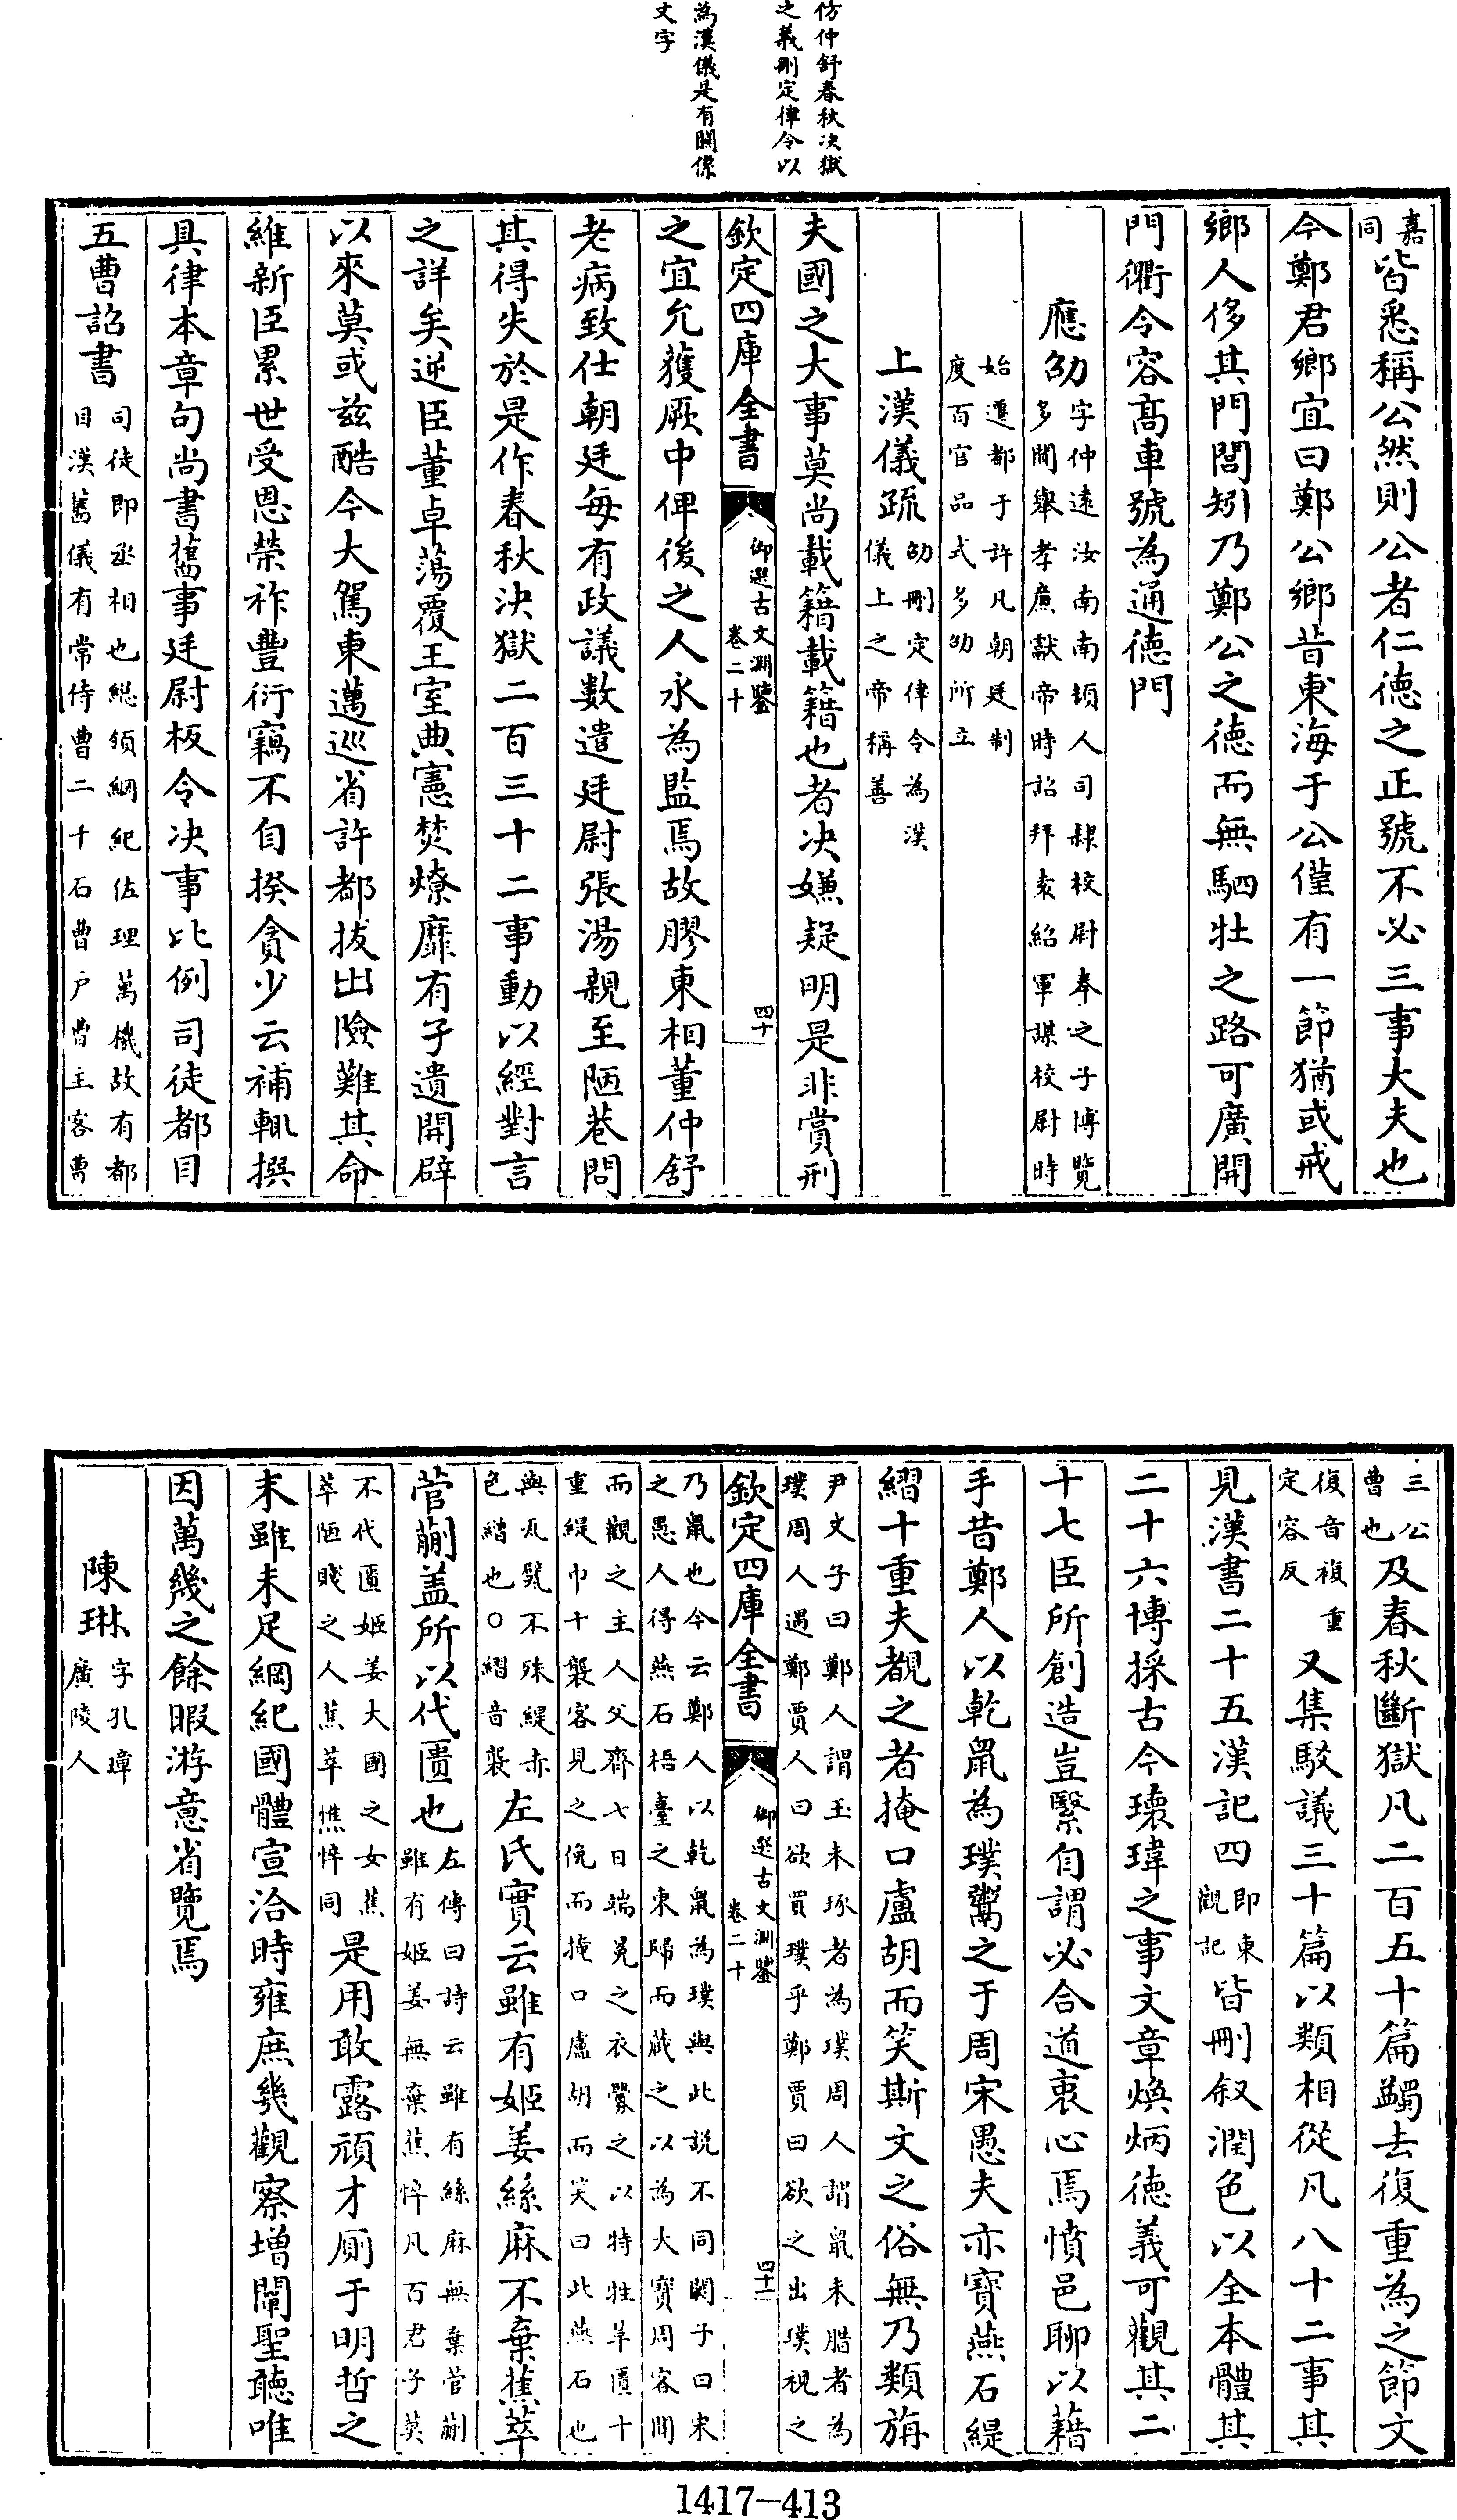 仿仲舒春秋决獄
之義刪定律令以
為漢儀是有關係
文字
嘉同皆悉稱公然則公者仁德之正號不必三事大夫也
今鄭君鄉宜曰鄭公鄉昔東海于公僅有一節猶或戒
鄉人侈其門閭矧乃鄭公之德而無駟牡之路可廣開
門衢令容髙車號為通德門
應劭字仲遠汝南南頓人司隸校尉奉之子博覽多聞舉孝廉獻帝時詔拜袁紹軍謀校尉時
始遷都于許凡朝廷制度百官品式多劭所立
上漢儀疏劭刪定律令為漢儀上之帝稱善
夫國之大事莫尚載籍載籍也者决嫌疑明是非賞刑
欽定四庫全書 御選古文淵鑒 卷二十 四十
之宜允獲厥中俾後之人永為監焉故膠東相董仲舒
老病致仕朝廷每有政議數遣廷尉張湯親至陋巷問
其得失於是作春秋决獄二百三十二事動以經對言
之詳矣逆臣董卓蕩覆王室典憲焚燎靡有孑遺開辟
以來莫或兹酷今大駕東邁巡省許都拔出險難其命
維新臣累世受恩榮祚豐衍竊不自揆貪少云補輒撰
具律本章句尚書舊事廷尉板令决事比例司徒都目
五曹詔書司徒即丞相也総領綱紀佐理萬機故有都目漢舊儀有常侍曹二千石曹户曹主客曹
三公曹也及春秋斷獄凡二百五十篇蠲去復重為之節文
復音複重定容反又集駁議三十篇以類相從凡八十二事其
見漢書二十五漢記四即東觀記皆刪叙潤色以全本體其
二十六博採古今瓌瑋之事文章煥炳德義可觀其二
十七臣所創造豈繄自謂必合道衷心焉憤邑聊以藉
手昔鄭人以乾鼠為璞鬻之于周宋愚夫亦寶燕石緹
緼十重夫覩之者掩口盧胡而笑斯文之俗無乃類旃
尹文子曰鄭人謂玉未琢者為璞周人謂鼠未腊者為璞周人遇鄭賈人曰欲買璞乎鄭賈曰欲之出璞視之
欽定四庫全書 御選古文淵鑒 卷二十 四十一
乃鼠也今云鄭人以乾鼠為璞與此說不同闕子曰宋之愚人得燕石梧臺之東歸而藏之以為大寶周客聞
而觀之主人父齋七日端冕之衣釁之以特牲革匱十重緹巾十襲客見之俛而掩口盧胡而笑曰此燕石也
與瓦甓不殊緹赤色繒也○緼音襲左氏實云雖有姬姜絲麻不棄蕉萃
菅蒯盖所以代匱也左傳曰詩云雖有絲麻無棄菅蒯雖有姬姜無棄蕉悴凡百君子莫
不代匱姬姜大國之女蕉萃陋賤之人蕉萃憔悴同是用敢露頑才厠于明哲之
末雖未足綱紀國體宣洽時雍庶幾觀察增闡聖聽唯
因萬幾之餘暇游意省覽焉
陳琳字孔璋廣陵人
1417-413